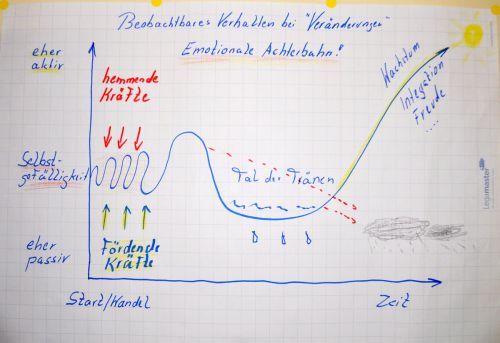 Beobachtbares Verhalten bei "Veränderungen"
Emotionale Achterbahn!
eher
aktiv
hemmende
Kräfte
Wachstum
Integration
Freude
....
Selbst-
gefälligkeit
Tal der Tränen
Legamaster
Fördende
Kräfte
eher
passiv
Start/Wandel
Zeit